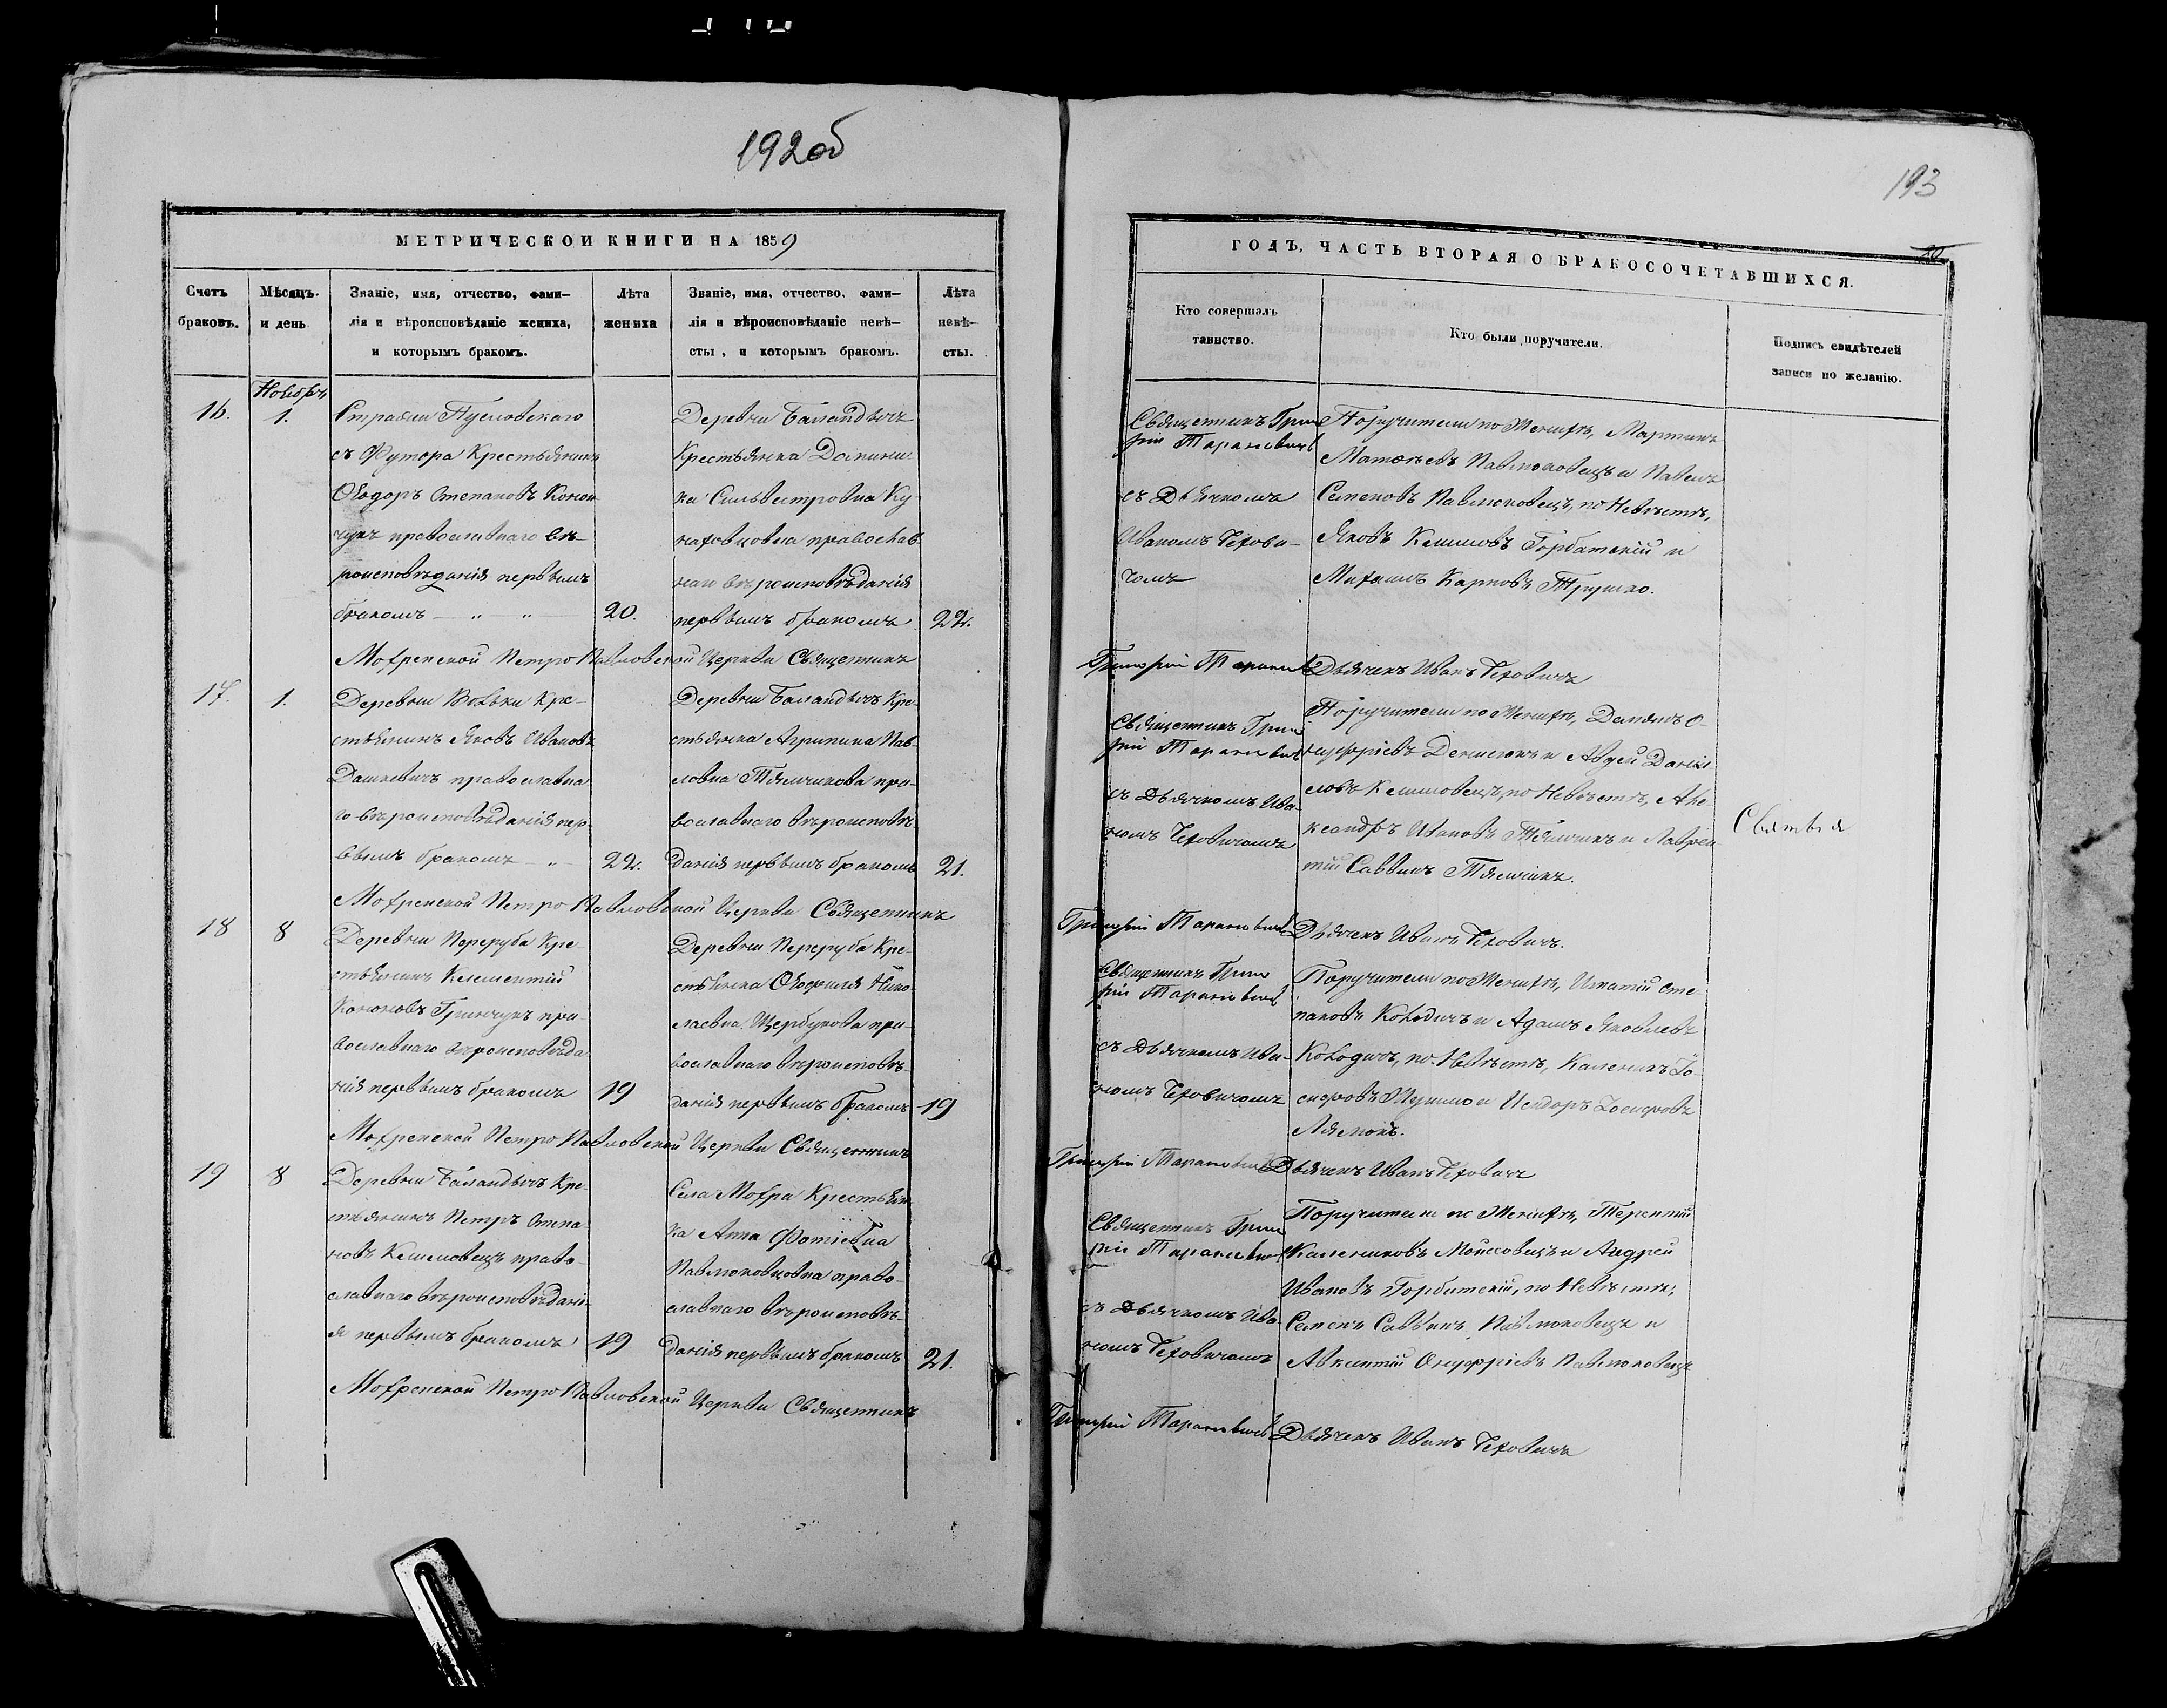 192об
193
МЕТРИЧЕСКОИ КНИГИ НА 1859
Счетъ браковъ.
Мѣсяцъ и день
Званіе, имя, отчество, фами-
лія и вѣроисповѣданіе жениха,
и которымъ бракомъ.
Лѣта жениха
Званіе, имя, отчество, фами-
лія и вѣроисповѣданіе невѣ-
сты, и которымъ бракомъ.
Лѣта невѣ-
сты.
Ноябрь
16.
1.
съ Футора Крестьянинъ
Ѳеодоръ Степановъ Конон-
чукъ православнаго вѣ-
роисповѣданія первымъ
бракомъ — „ — „ —
20.
Деревни Баландичъ
Крестьянка Домини-
ка Сильвестровна Ку-
православ
наго вѣроисповѣданія
первымъ бракомъ
22.
Мохренской Петро Павловской Церкви Священникъ
17.
1.
Деревни Вольки Кре-
стьянинъ Яковъ Ивановъ
Дашкевичъ православна
го вѣроисповѣданія пер-
вымъ бракомъ — „
22.
Деревни Баландичъ Кре-
стьянка Агрипина Пав-
ловна Тямчикова пра-
вославнаго вѣроисповѣ-
данія первымъ бракомъ
21.
Мохренской Петро Павловской Церкви Священникъ
18
8
Деревни Переруба Кре-
стьянинъ Климентій
Кононовъ Гринчукъ пра-
вославнаго вѣроисповѣда
нія первымъ бракомъ
19
Деревни Переруба Кре-
стьянка Ѳеофилія Нико-
лаевна Щербукова пра-
вославнаго вѣроисповѣ-
данія первымъ бракомъ
19
Мохренской Петро Павловской Церкви Священникъ
19
8
Деревни Баландичъ Кре-
стьянинъ Петръ Степа-
новъ Климовецъ право-
славнаго вѣроисповѣдані-
я первымъ бракомъ
19
Села Мохра Крестьян-
ка Анна Фотіевна
Павлюковцовна право-
славнаго вѣроисповѣ-
данія первымъ бракомъ
21.
Мохренской Петро Павловской Церкви Священникъ
ГОДЪ, ЧАСТЬ ВТОРАЯ О БРАКОСОЧЕТАВШИХСЯ.
Кто совершалъ
таинство.
Кто были поручители.
Подпись свидѣтелей
записи по желанію.
Священникъ Григо
рій Тарановичъ
съ Дьячкомъ
Иваномъ Чехови-
чомъ
Поручители по Женихѣ, Мартинъ
Матѳеевъ Павлюковецъ и Павелъ
Семеновъ Павлюковецъ, по Невѣстѣ,
Яковъ Климовъ Горбатскій и
Михаилъ Карповъ Трушко.
Григорій Тарановичъ Дьячекъ Иванъ Чеховичъ
Священникъ Григо
рій Тарановичъ
съ Дьячкомъ Ива-
номъ Чеховичомъ
Поручители по Женихѣ, Демянъ О-
нуфріевъ Денисюкъ и Авдей Даніи
ловъ Климовецъ, по Невѣстѣ, Але-
ксандръ Ивановъ Тямчикъ и Лаврен-
тій Саввинъ Тямчикъ.
Григорій Тарановичъ Дьячекъ Иванъ Чеховичъ.
Священникъ Григо
рій Тарановичъ
съ Дьячкомъ Ива-
номъ Чеховичомъ
Поручители по Женихѣ, Игнатій Сте-
пановъ Колодичъ и Адамъ Яковлевъ
Колодичъ, по Невѣстѣ, Каленикъ Іо-
сифовъ и Исидоръ Іосифовъ
Григорій Тарановичъ Дьячекъ Иванъ Чеховичъ
Священникъ Григо
рій Тарановичъ
съ Дьячкомъ Ива-
номъ Чеховичомъ
Поручители по Женихѣ, Терентій
Калениковъ Мойсовецъ и Андрей
Ивановъ Горбатскій, по Невѣстѣ;
Семенъ Саввинъ Павлюковецъ и
Авксентій Онуфріевъ Павлюковецъ
Григорій Тарановичъ Дьячекъ Иванъ Чеховичъ